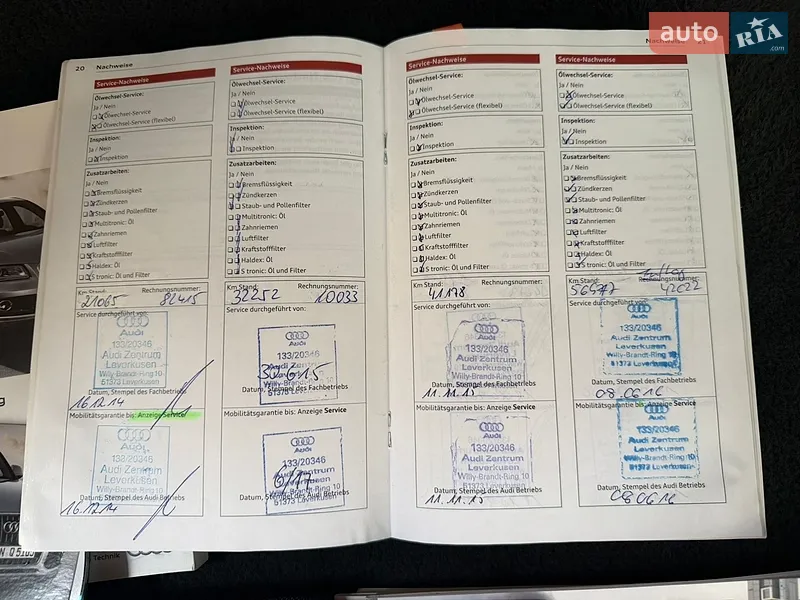 auto
RIA
.com
20
Nachweise
Service-Nachweise
Ölwechsel-Service:
Ja / Nein
Ölwechsel-Service
Ölwechsel-Service (flexibel)
Inspektion:
Ja / Nein
Inspektion
Zusatzarbeiten:
Ja / Nein
Bremsflüssigkeit
Zündkerzen
Staub- und Pollenfilter
Multitronic: Öl
Zahnriemen
Luftfilter
Kraftstofffilter
Haldex: Öl
S tronic: Öl und Filter
Km Stand: Rechnungsnummer:
21065 82415
Service durchgeführt von:
Audi
133/20346
Audi Zentrum
Leverkusen
Willy-Brandt-Ring 10
51373 Leverkusen
Datum, Stempel des Fachbetriebs
16.12.14
Mobilitätsgarantie bis: Anzeige Service
Audi
133/20346
Audi Zentrum
Leverkusen
Willy-Brandt-Ring 10
51373 Leverkusen
Datum, Stempel des Audi Betriebs
16.12.14
Service-Nachweise
Ölwechsel-Service:
Ja / Nein
Ölwechsel-Service
Ölwechsel-Service (flexibel)
Inspektion:
Ja / Nein
Inspektion
Zusatzarbeiten:
Ja / Nein
Bremsflüssigkeit
Zündkerzen
Staub- und Pollenfilter
Multitronic: Öl
Zahnriemen
Luftfilter
Kraftstofffilter
Haldex: Öl
S tronic: Öl und Filter
Km Stand: Rechnungsnummer:
32252 10033
Service durchgeführt von:
Audi
133/20346
Audi Zentrum
Willy-Brandt-Ring 10
51373 Leverkusen
Datum, Stempel des Fachbetriebs
Mobilitätsgarantie bis: Anzeige Service
Audi
133/20346
Audi Zentrum
Willy-Brandt-Ring 10
Datum, Stempel des Audi Betriebs
51373 Leverkusen
Nachweise 21
Service-Nachweise
Ölwechsel-Service:
Ja / Nein
Ölwechsel-Service
Ölwechsel-Service (flexibel)
Inspektion:
Ja / Nein
Inspektion
Zusatzarbeiten:
Ja / Nein
Bremsflüssigkeit
Zündkerzen
Staub- und Pollenfilter
Multitronic: Öl
Zahnriemen
Luftfilter
Kraftstofffilter
Haldex: Öl
S tronic: Öl und Filter
Km Stand: Rechnungsnummer:
41178
Service durchgeführt von:
Audi
133/20346
Audi Zentrum
Leverkusen
Willy-Brandt-Ring 10
Datum, Stempel des Fachbetriebs
11.11.15
Mobilitätsgarantie bis: Anzeige Service
Audi
133/20346
Audi Zentrum
Leverkusen
Willy-Brandt-Ring 10
Datum, Stempel des Audi Betriebs
11.11.15
Service-Nachweise
Ölwechsel-Service:
Ja / Nein
Ölwechsel-Service
Ölwechsel-Service (flexibel)
Inspektion:
Ja / Nein
Inspektion
Zusatzarbeiten:
Ja / Nein
Bremsflüssigkeit
Zündkerzen
Staub- und Pollenfilter
Multitronic: Öl
Zahnriemen
Luftfilter
Kraftstofffilter
Haldex: Öl
S tronic: Öl und Filter
Km Stand: Rechnungsnummer:
42022
Service durchgeführt von:
Audi
133/20346
Audi Zentrum
Leverkusen
Willy-Brandt-Ring 10
51373 Leverkusen
Datum, Stempel des Fachbetriebs
08.06.16
Mobilitätsgarantie bis: Anzeige Service
Audi
133/20346
Audi Zentrum
Leverkusen
Willy-Brandt-Ring 10
51373 Leverkusen
Datum, Stempel des Audi Betriebs
08.06.16
Technik